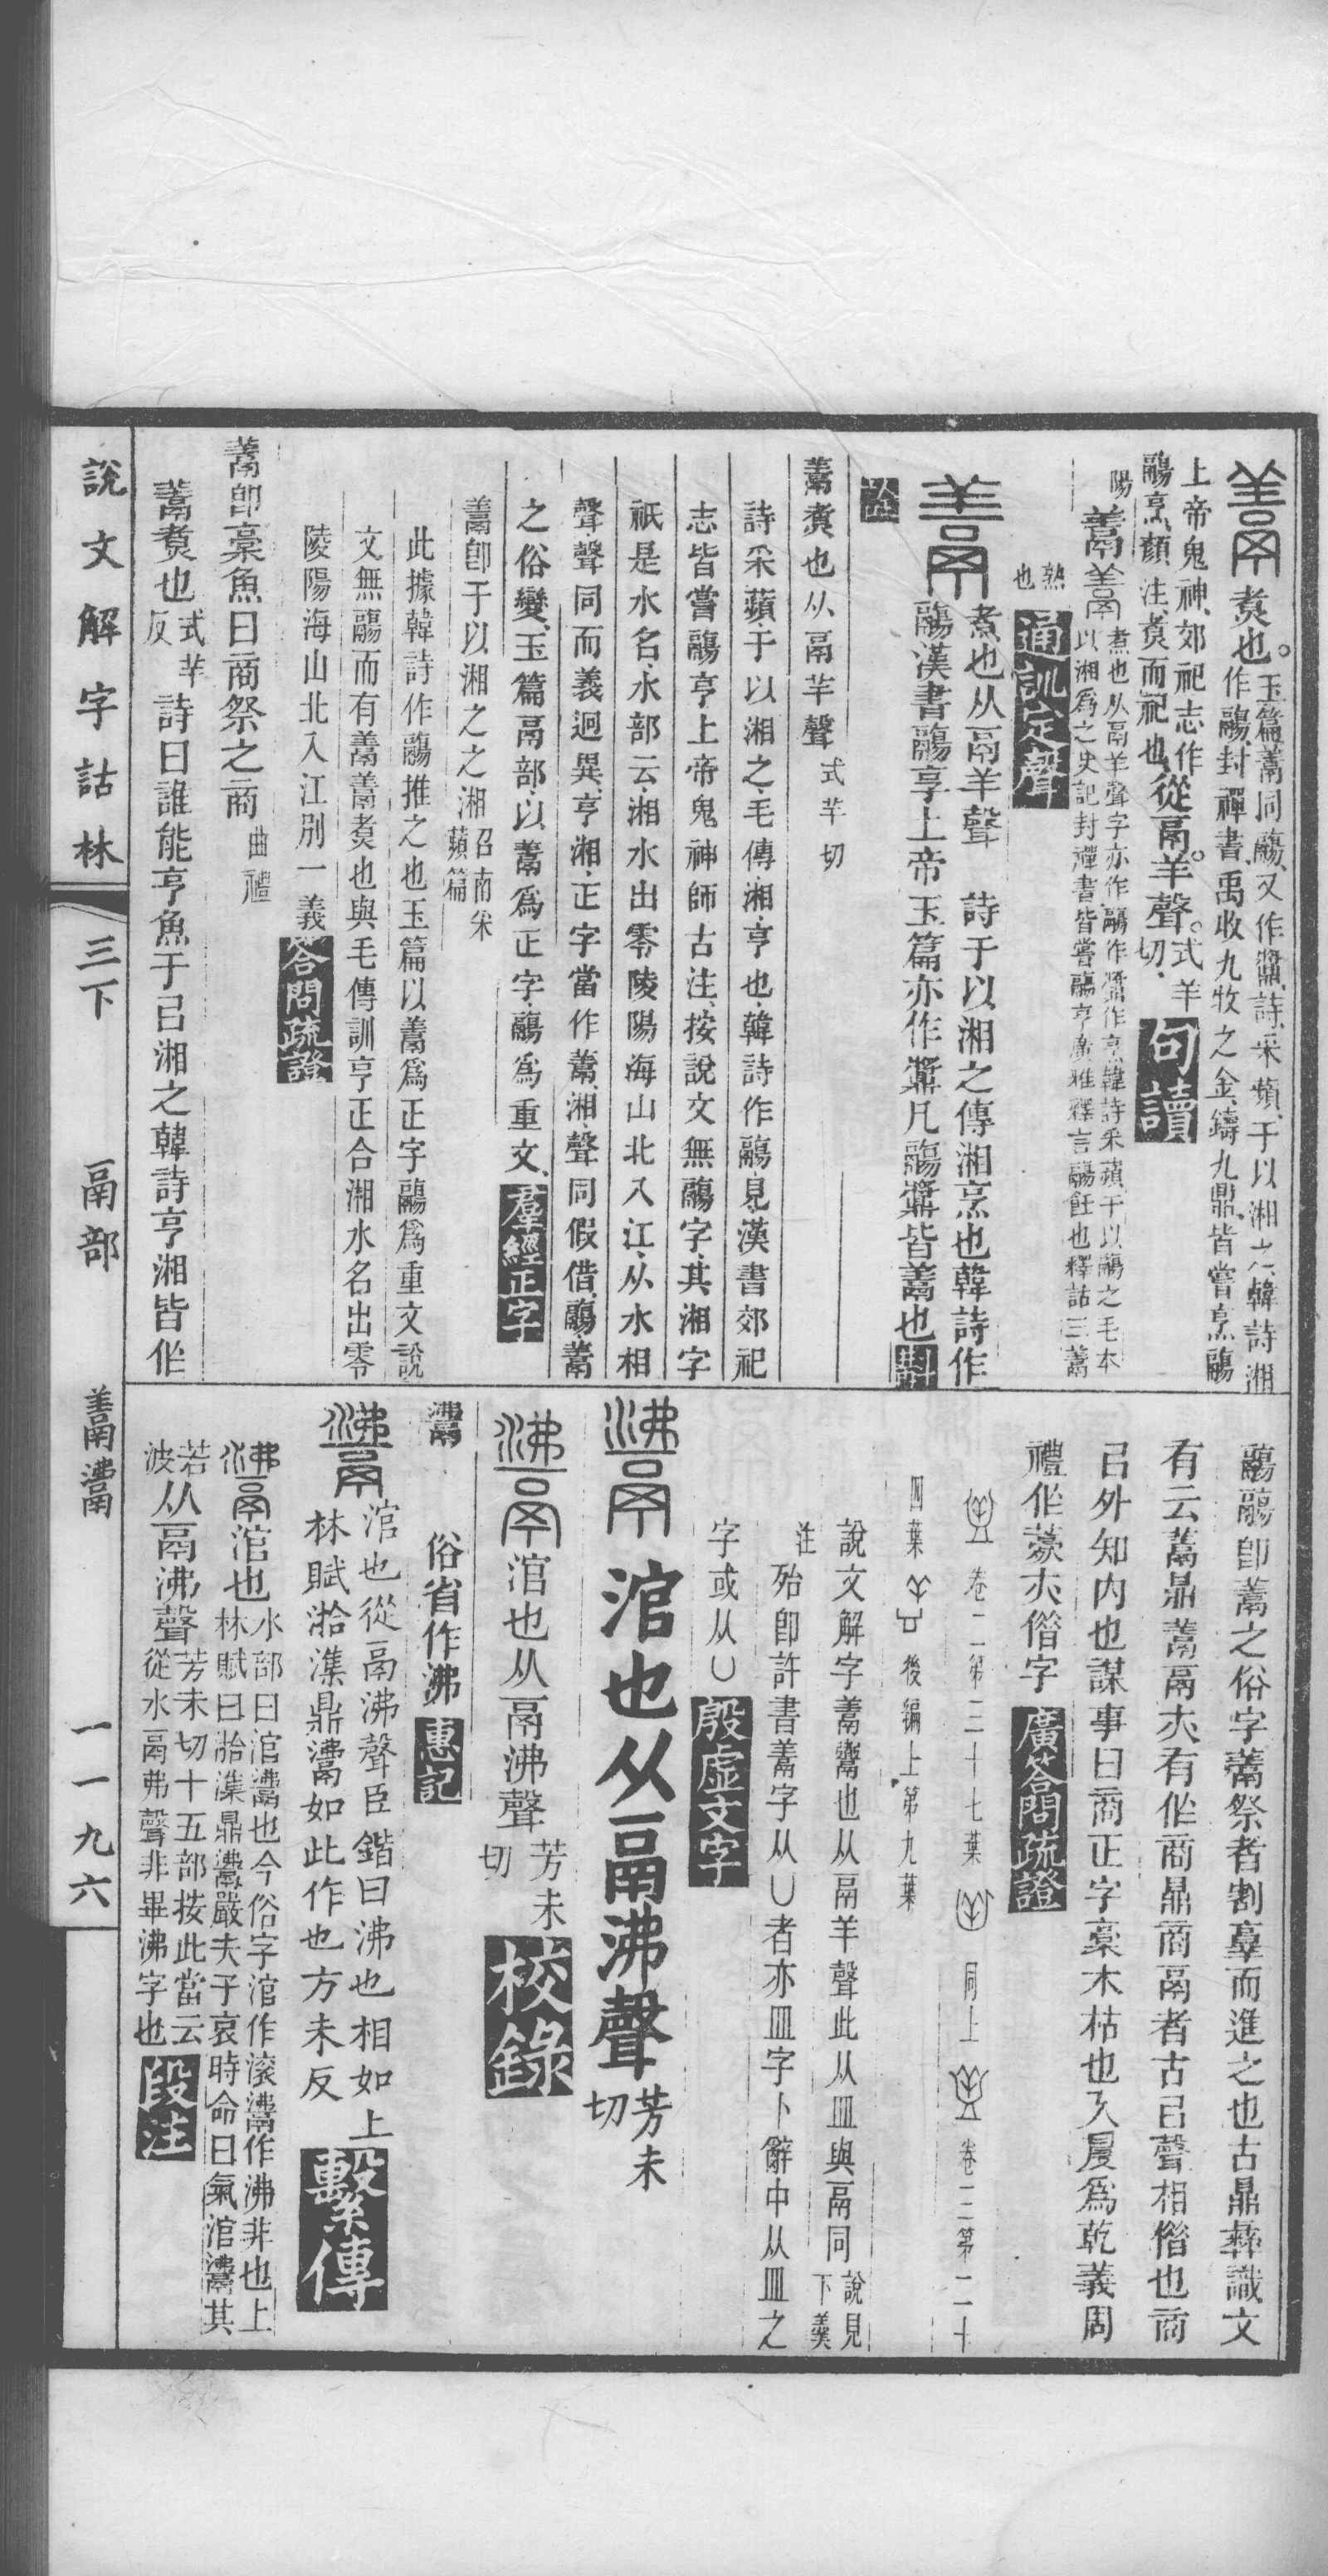 𩱁煑也。玉篇𩱁同鬺、又作𩱋、詩、采蘋、于以湘之、韓詩湘
作鬺、封禪書、禹收九牧之金、鑄九鼎、皆嘗烹鬺
上帝鬼神、郊祀志作
鬺亨、顏注、煑而祀也、從鬲。羊聲。式羊切、句讀
陽𩱁𩱁煮也从鬲羊聲字亦作鬺作𩱋作亯韓詩采蘋于以鬺之毛本
以湘爲之史記封禪書皆嘗鬺亨廣雅釋言鬺飪也釋詁三𩱁
熟也通訓定聲
𩱁煮也从鬲羊聲 詩于以湘之傳湘烹也韓詩作
鬺漢書鬺享上帝玉篇亦作𩱋凡鬺𩱋皆𩱁也斠
詮
𩱁煑也从鬲羊聲式羊切
詩采蘋、于以湘之、毛傳、湘、亨也、韓詩作鬺、見漢書郊祀
志皆嘗鬺亨上帝鬼神師古注、按說文無鬺字、其湘字
祇是水名、水部云、湘水出零陵陽海山北入江、从水相
聲、聲同而義迥異、亨湘、正字當作𩱁、湘、聲同假借、鬺、𩱁
之俗變、玉篇鬲部、以𩱁爲正字鬺爲重文、羣經正字
𩱁卽于以湘之之湘召南采蘋篇
此據韓詩作鬺推之也玉篇以𩱁爲正字鬺爲重文說
文無鬺而有𩱁𩱁煑也與毛傳訓亨正合湘水名出零
陵陽海山北入江別一義答問疏證
𩱁卽槀魚曰商祭之商曲禮
𩱁煑也式羊反詩曰誰能亨魚于㠯湘之韓詩亨湘皆作
鬺鬺卽𩱁之俗字𩱁祭者割𦎫而進之也古鼎彝識文
有云𩱁鼎𩱁鬲亣有作商鼎商鬲者古㠯聲相偕也商
㠯外知内也謀事曰商正字槀木枯也久㬅爲乾義周
禮作薧亣偕字廣答問疏證
卷二第三十七葉 同上 卷二第二十
四葉 後編上第九葉
說文解字𩱁𩱋也从鬲羊聲此从皿與鬲同說見下羹
注殆卽許書𩱁字从凵者亦皿字卜辭中从皿之
字或从凵殷虛文字
𩱲涫也从鬲沸聲芳未切
𩱲涫也从鬲沸聲芳未切校錄
𩱲 俗省作沸惠記
𩱲涫也從鬲沸聲臣鍇曰沸也相如上
林賦湁潗鼎𩱲如此作也方未反繫傳
𩱲涫也水部曰涫𩱲也今俗字涫作滾𩱲作沸非也上
林賦曰湁潗鼎𩱲嚴夫子哀時命曰氣涫𩱲其
若波从鬲沸聲芳未切十五部按此當云
從水鬲弗聲非畢沸字也段注
說文解字詁林 三下 鬲部 𩱁𩱲 一一九六